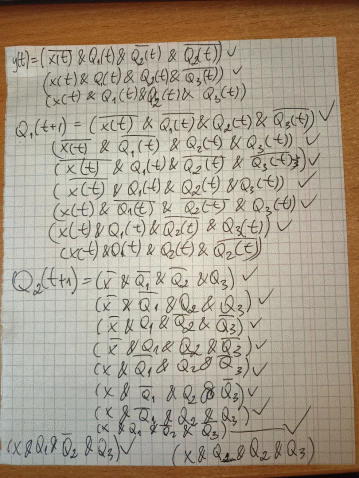 y(t) = (x̅(̅t̅)̅ & Q₁(t) & Q̅₂(t) & Q̅₂(t)) ✓
(x(t) & Q(t) & Q₂(t) & Q̅₃(t)) ✓
(x(t) & Q₁(t) & Q₂(t) & Q₃(t))
Q₁(t+1) = (x̅(̅t̅)̅ & Q̅₁(t) & Q₂(t) & Q̅₃(t)) ✓
(x̅(̅t̅)̅ & Q̅₁(t) & Q₂(t) & Q₃(t)) ✓
(x̅(̅t̅)̅ & Q₁(t) & Q̅₂(t) & Q̅₃(t)) ✓
(x̅(t) & Q₁(t) & Q₂(t) & Q₃(t)) ✓
(x(t) & Q̅₁(t) & Q̅₂(t) & Q₃(t)) ✓
(x(t) & Q₁(t) & Q̅₂(t) & Q₃(t)) ✓
(x(t) & Q₁(t) & Q₂(t) & Q̅₂(t))
Q₂(t+1) = (x̅ & Q̅₁ & Q̅₂ & Q₃) ✓
(x̅ & Q̅₁ & Q₂ & Q₃) ✓
(x̅ & Q₁ & Q̅₂ & Q̅₃) ✓
(x̅ & Q₁ & Q₂ & Q̅₃) ✓
(x & Q̅₁ & Q̅₂ & Q̅₃) ✓
(x & Q̅₁ & Q₂ & Q̅₃) ✓
(x & Q̅₁ & Q₂ & Q₃) ✓
(x & Q₁ & Q̅₂ & Q̅₃) ✓
(x & Q₁ & Q̅₂ & Q₃) ✓ (x & Q₁ & Q₂ & Q₃)